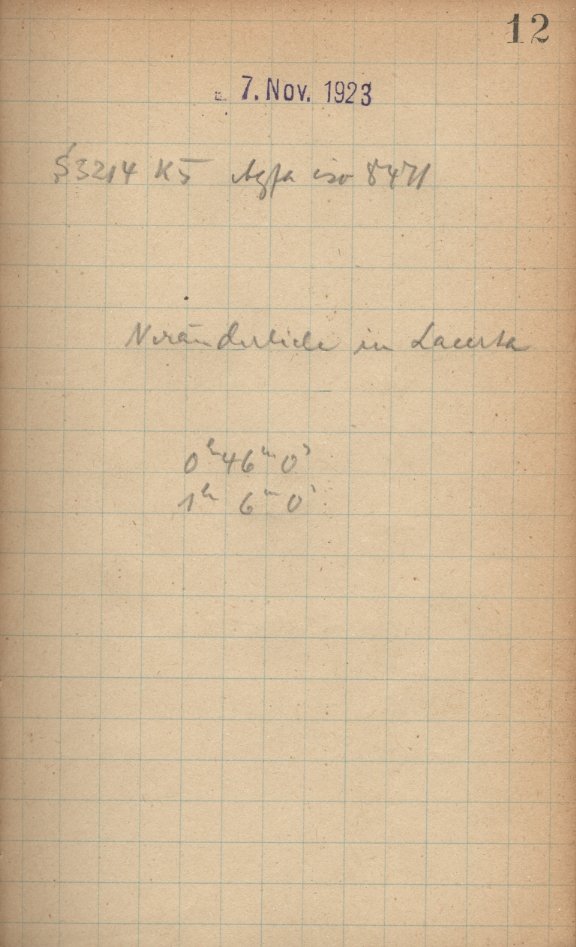 12
7. Nov. 1923
S3214 K5 Agfa iso 8471
Veränderliche in Lacerta
0ʰ46ᵐ0ˢ
1ʰ 6ᵐ 0ˢ